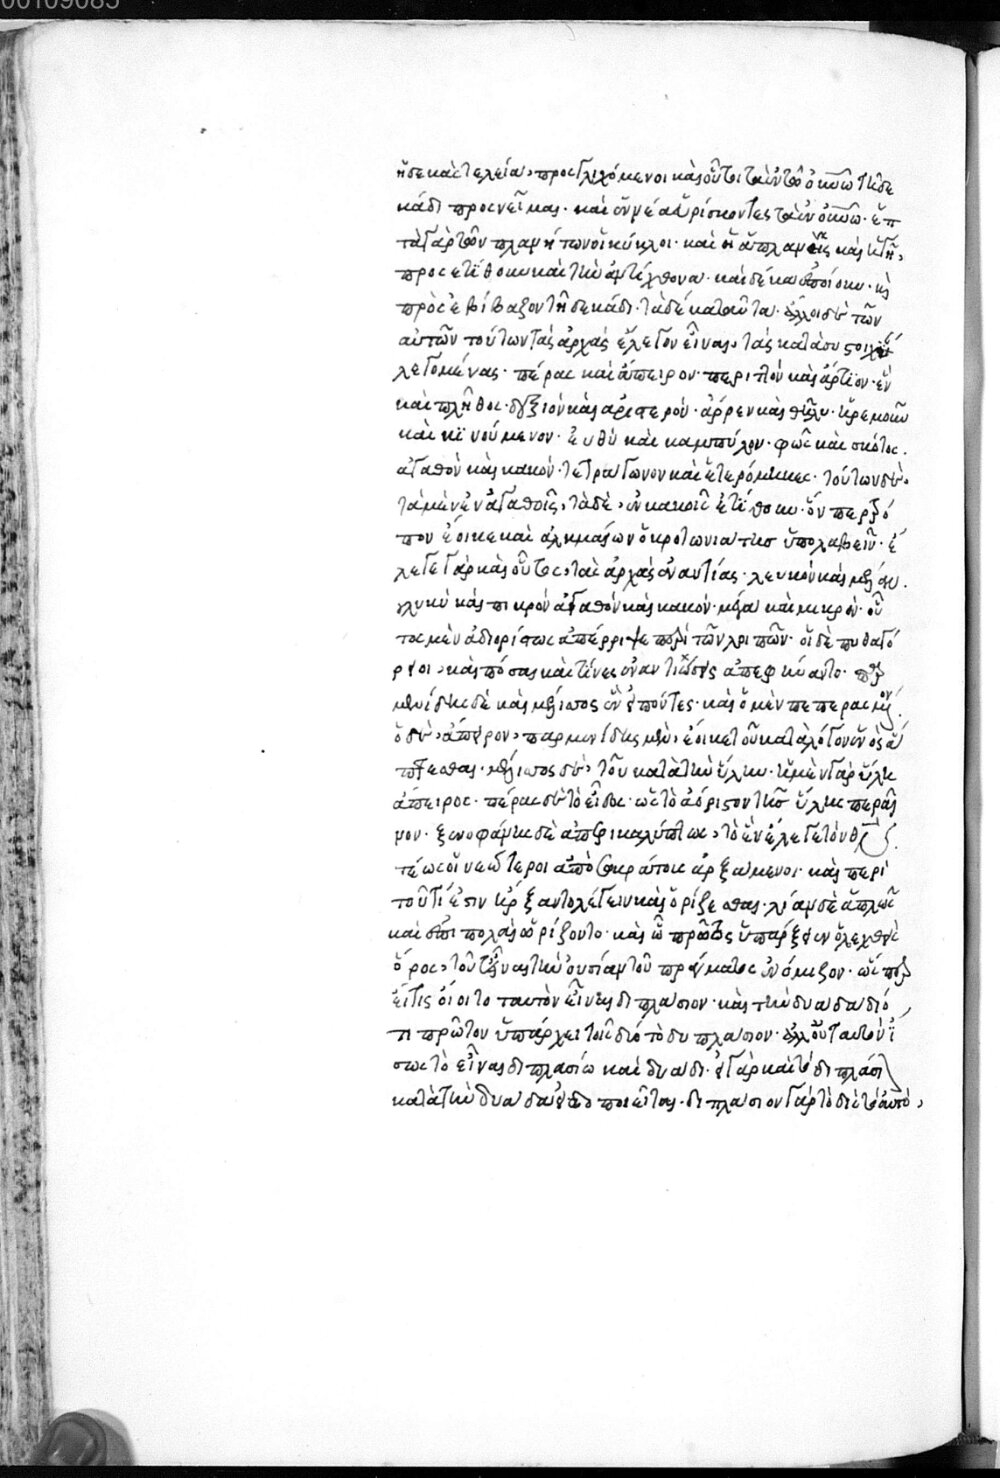 ἤδε καὶ τελεία, προσγλιχόμενοι καὶ οὗτοι τὰ ἐν τῷ οὐνῶ τῆ δε
κάδι προσνεῖμαι· καὶ ἐννέα εὑρίσκοντες τὰ ἐν οὐνῶ· ἑπ
τὰ γὰρ τῶν πλανήτων οἱ κύκλοι· καὶ ἡ ἀπλανὴς καὶ ἡ γῆ,
προσετίθουν καὶ τὴν ἀντίχθονα· καὶ δέκα ἐποίουν· καὶ
προσεβίβαζον τῆ δεκάδι· τὰ δέκα ταῦτα· ἄλλοι δὲ τῶν
αὐτῶν τούτων τὰς ἀρχὰς ἔλεγον εἶναι, τὰς κατὰ συστοιχίαν
λεγομένας· πέρας καὶ ἄπειρον· περιττὸν καὶ ἄρτιον· ἓν
καὶ πλῆθος· δεξιὸν καὶ ἀριστερόν· ἄρρεν καὶ θῆλυ· ἠρεμοῦν
καὶ κινούμενον· εὐθὺ καὶ καμπύλον· φῶς καὶ σκότος·
ἀγαθὸν καὶ κακόν· τετράγωνον καὶ ἑτερόμηκες· τούτων δὲ,
τὰ μὲν ἐν ἀγαθοῖς, τὰ δὲ, ἐν κακοῖς ἐτίθουν· ὅνπερ τρό
πον ἔοικε καὶ ἀλκμαίων ὁ κροτωνιάτης ὑπολαβεῖν· ἔ
λεγε γὰρ καὶ οὗτος, τὰς ἀρχὰς ἐναντίας· λευκὸν καὶ μέλαν·
γλυκὺ καὶ πικρὸν ἀγαθὸν καὶ κακόν· μέγα καὶ μικρόν· οὗ
τος μὲν ἀδιορίστως ἀπέρριψε περὶ τῶν λοιπῶν· οἱ δὲ πυθαγό
ρειοι, καὶ πόσαι καὶ τίνες ἐναντιώσεις ἀπεφήναντο· παρ
μενίδης δὲ καὶ μέλισσος ἓν εἰπόντες· καὶ ὁ μὲν πεπερασμένον
ὁ δὲ, ἄπειρον, παρμενίδης μὲν, ἔοικε τοῦ κατὰ λόγον ἑνὸς ἅ
πτεσθαι· μέλισσος δὲ, τοῦ κατὰ τὴν ὕλην· ἡ μὲν γὰρ ὕλη
ἄπειρος· πέρας δὲ τὸ εἶδος· ὡς τὸ ἀόριστον τῆς ὕλης περαῖ
νον· ξενοφάνης δὲ ἀπερικαλύπτως, τὸ ἓν ἔλεγε τὸν θεόν
τέως οἱ νεώτεροι ἀπὸ σωκράτους ἀρξάμενοι· καὶ περὶ
τοῦ τί ἐστιν ἤρξαντο λέγειν καὶ ὁρίζεσθαι· λίαν δὲ ἁπλῶς
καὶ ἐπιπολαίως ὡρίζοντο· καὶ ᾧ πρώτως ὑπάρξειεν ὁ λεχθεὶς
ὅρος, τοῦτ' εἶναι τὴν οὐσίαν τοῦ πράγματος ἐνόμιζον· ὥσπερ
εἴ τις οἴοιτο ταυτὸν εἶναι διπλάσιον· καὶ τὴν δυάδα διό
τι πρῶτον ὑπάρχει τοῖς δυσὶ τὸ διπλάσιον· ἀλλ' οὐ ταυτὸν ἴ
σως τὸ εἶναι διπλασίῳ καὶ δυάδι· εἰ γὰρ καὶ τὸ διπλάσιον
κατὰ τὴν δυάδα εἰδοποιεῖται· διπλάσιον γὰρ τὸ δὶς τὸ αὐτό,